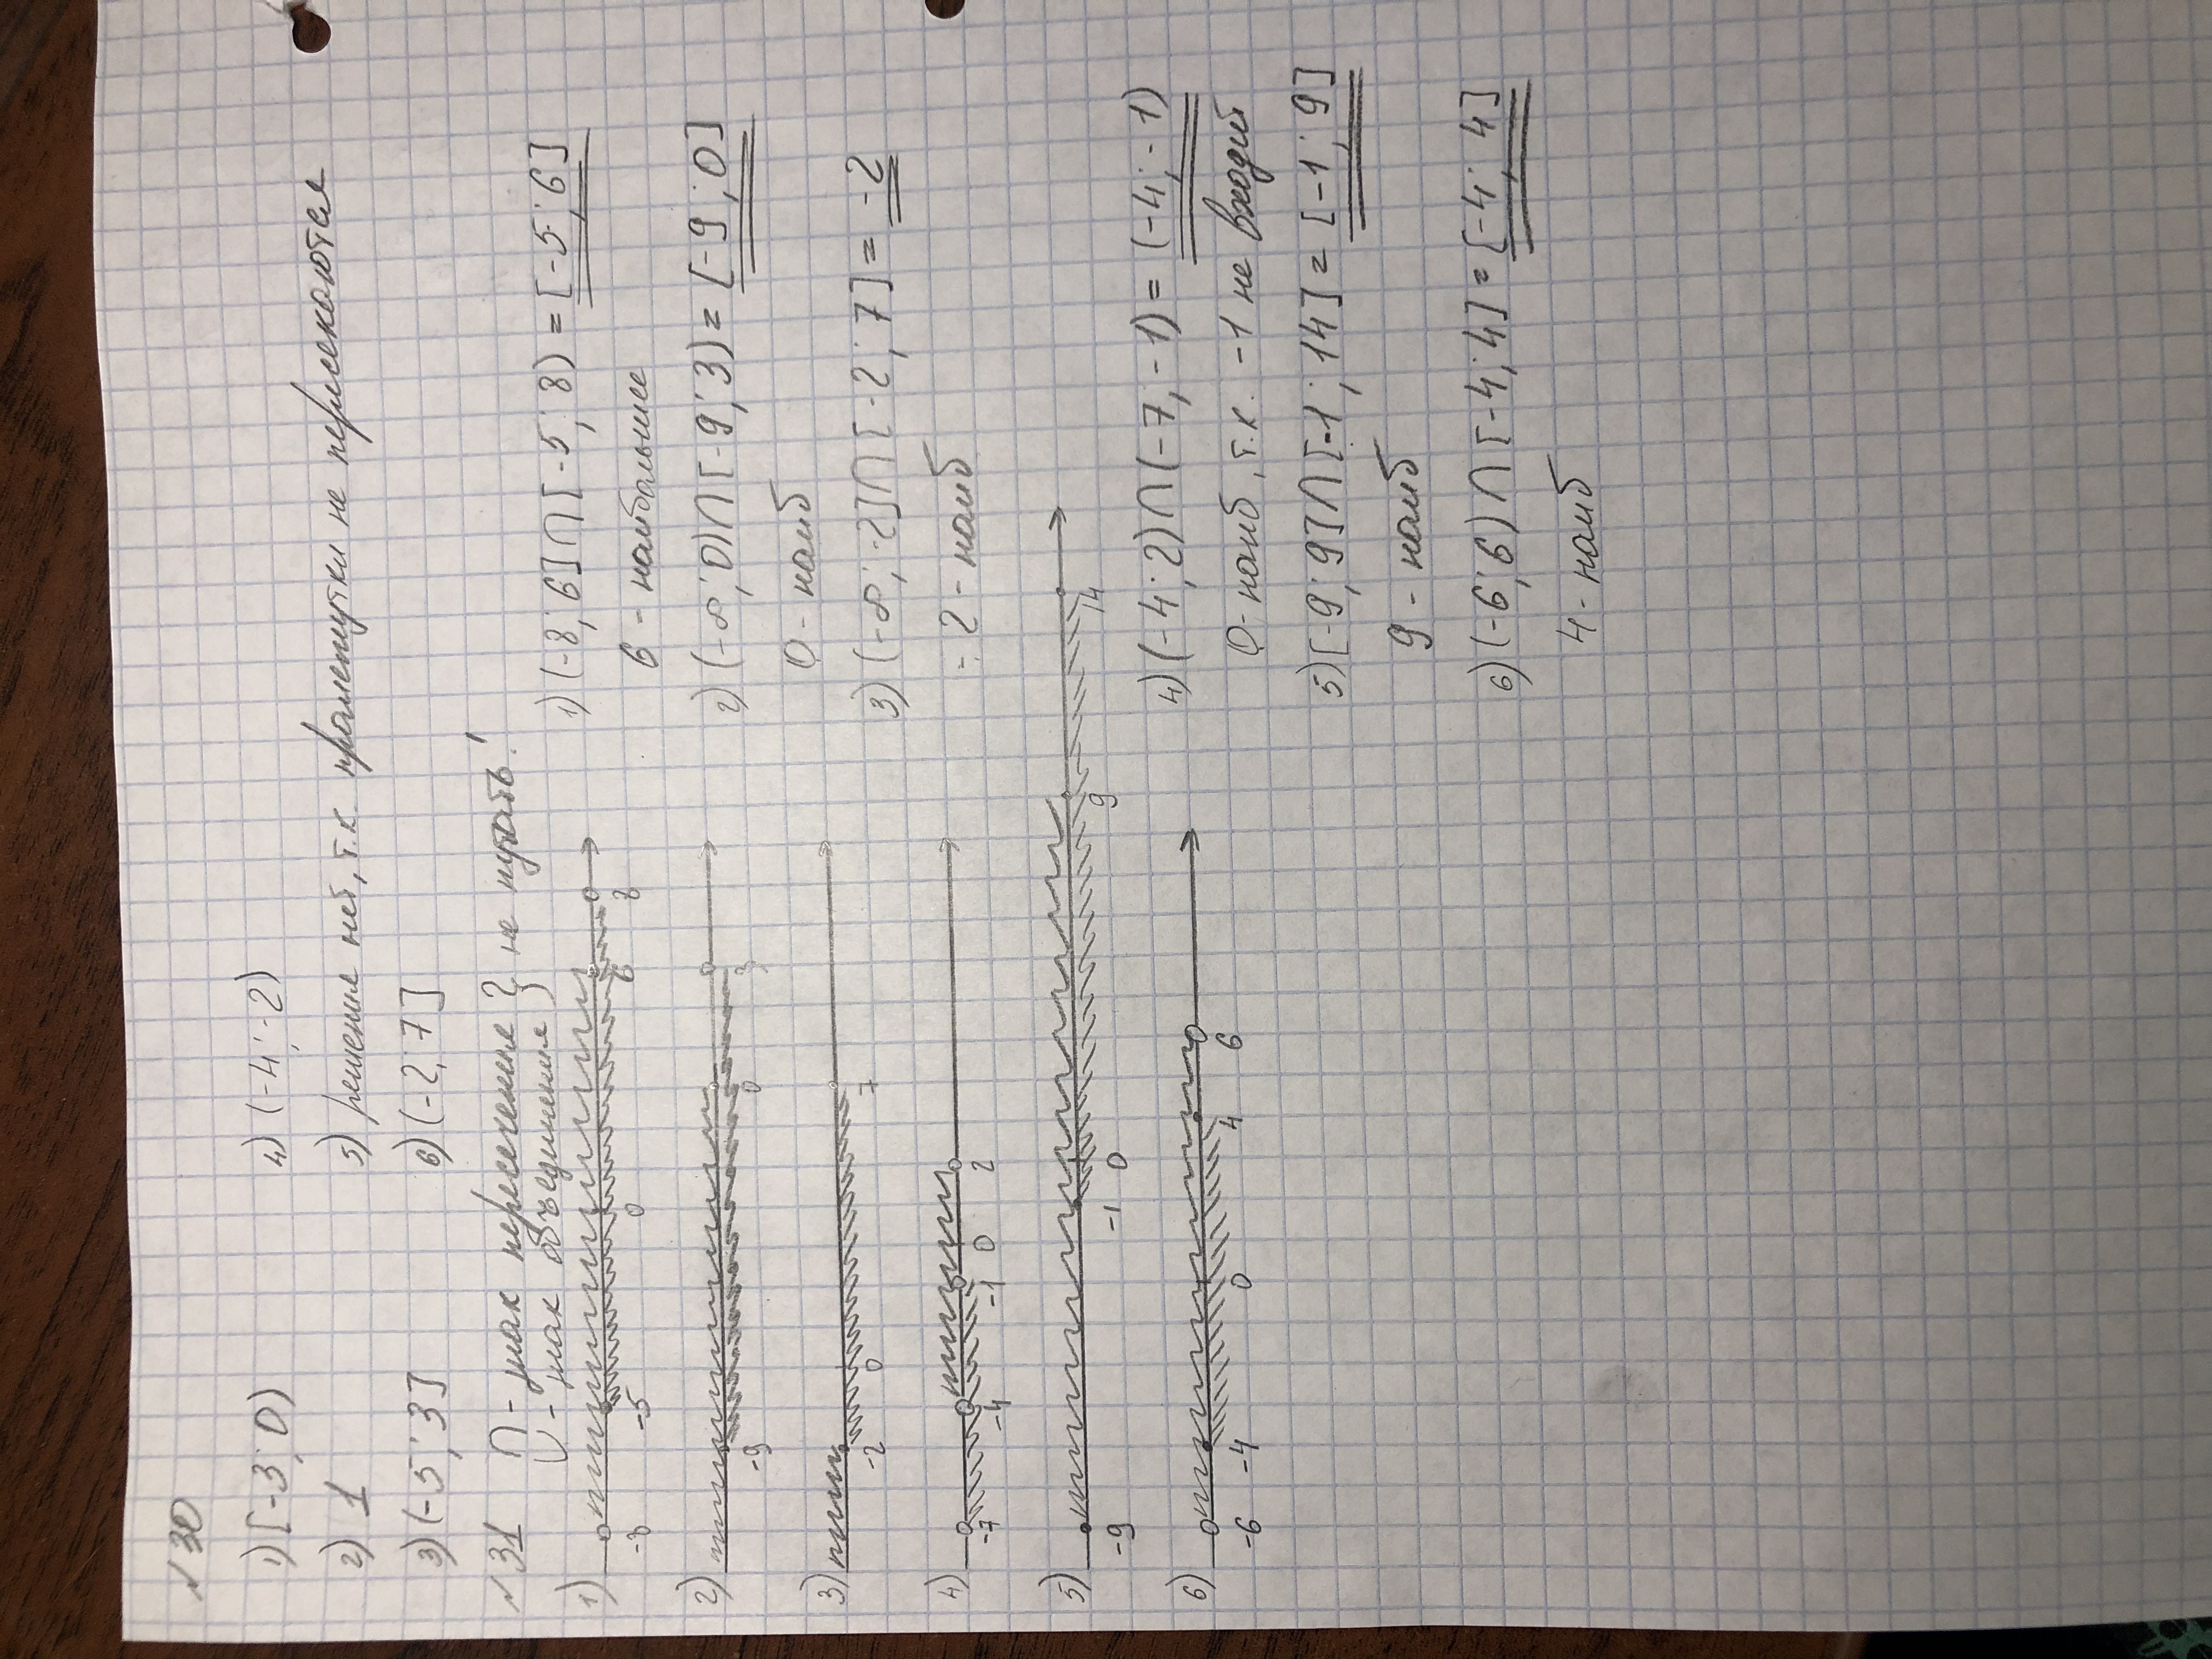 №30
1) [-3; 0)
4) (-4; -2)
2) 1
5) решения нет, т.к. промежутки не пересекаются
3) (-5; 3]
6) (-2; 7]
№31 ∩ - знак пересечения } не путать!
∪ - знак объединения
1) -8 -5 0 6 8
1) (-8; 6] ∩ [-5; 8) = [-5; 6]
6 - наибольшее
2) -9 0 3
2) (-∞; 0) ∩ [-9; 3) = [-9; 0]
0 - наиб
3) -2 0 7
3) (-∞; -2] ∩ [-2; 7] = -2
-2 - наиб
4) -7 -4 -1 0 2
4) (-4; 2) ∩ (-7; -1) = (-4; -1)
0 - наиб, т.к. -1 не входит
5) -9 -1 0 9 14
5) [-9; 9] ∩ [-1; 14] = [-1; 9]
9 - наиб
6) -6 -4 0 4 6
6) (-6; 6) ∩ [-4; 4] = [-4; 4]
4 - наиб